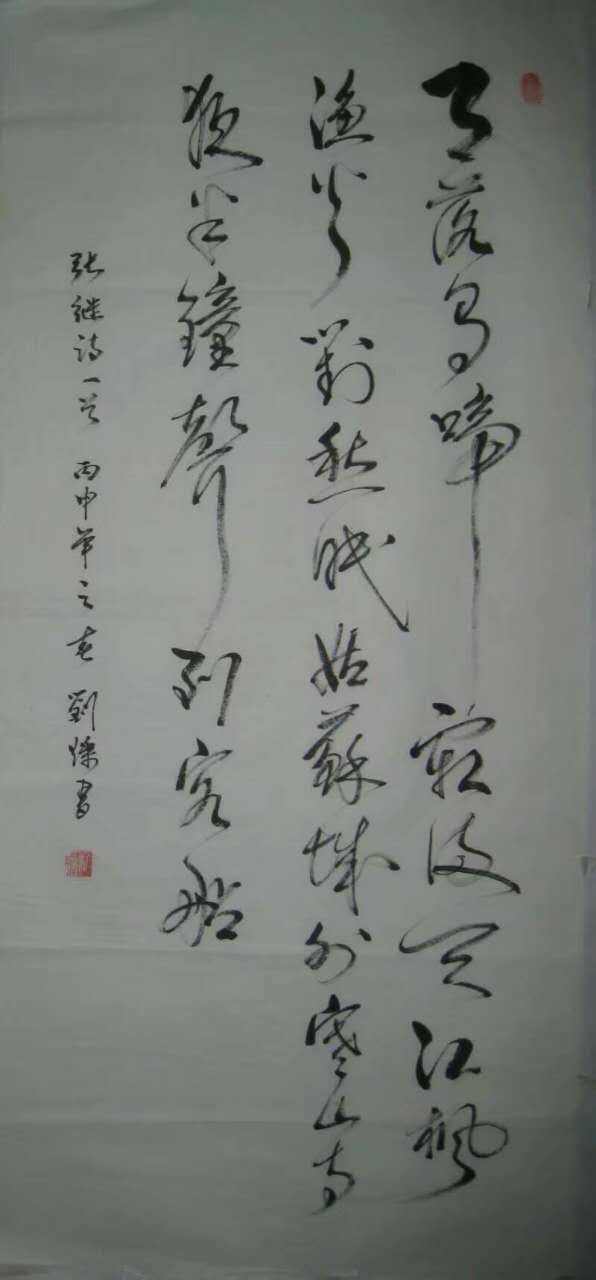 月落烏啼霜滿天江楓
漁火對愁眠姑蘇城外寒山寺
夜半鐘聲到客船
張繼詩一首 丙申年之春 劉傑書